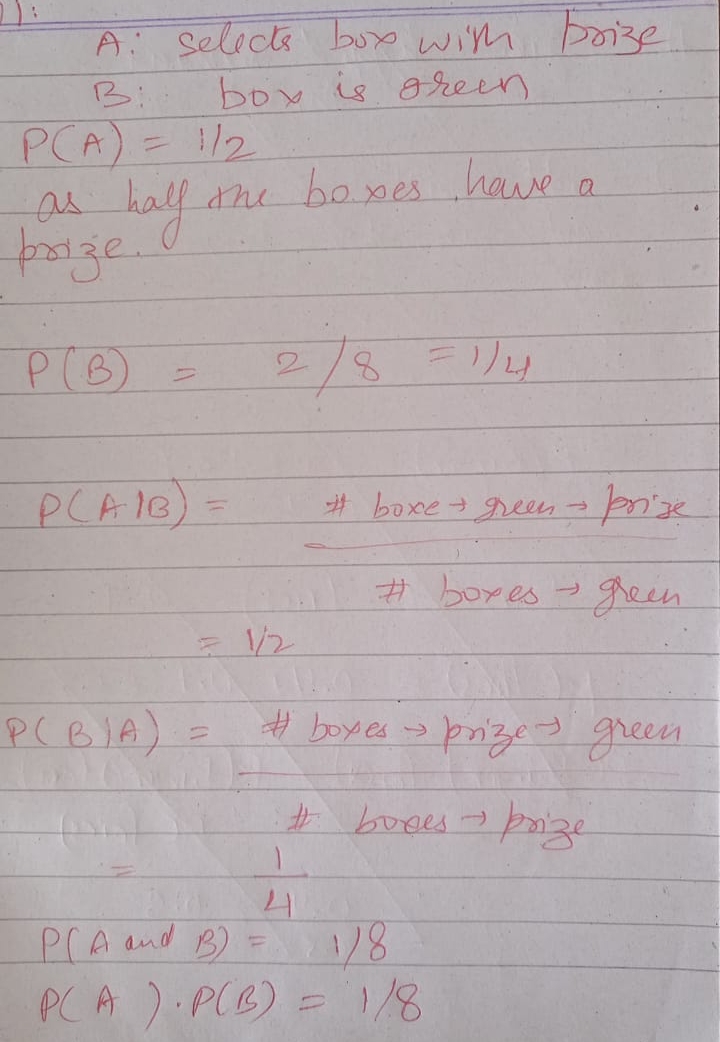 1):
A: selects box with prize
B: box is green
P(A) = 1/2
as half the boxes have a
prize.
P(B) = 2/8 = 1/4
P(A|B) = # boxe → green → prize
# boxes → green
= 1/2
P(B|A) = # boxes → prize → green
# boxes → prize
= 1
4
P(A and B) = 1/8
P(A).P(B) = 1/8